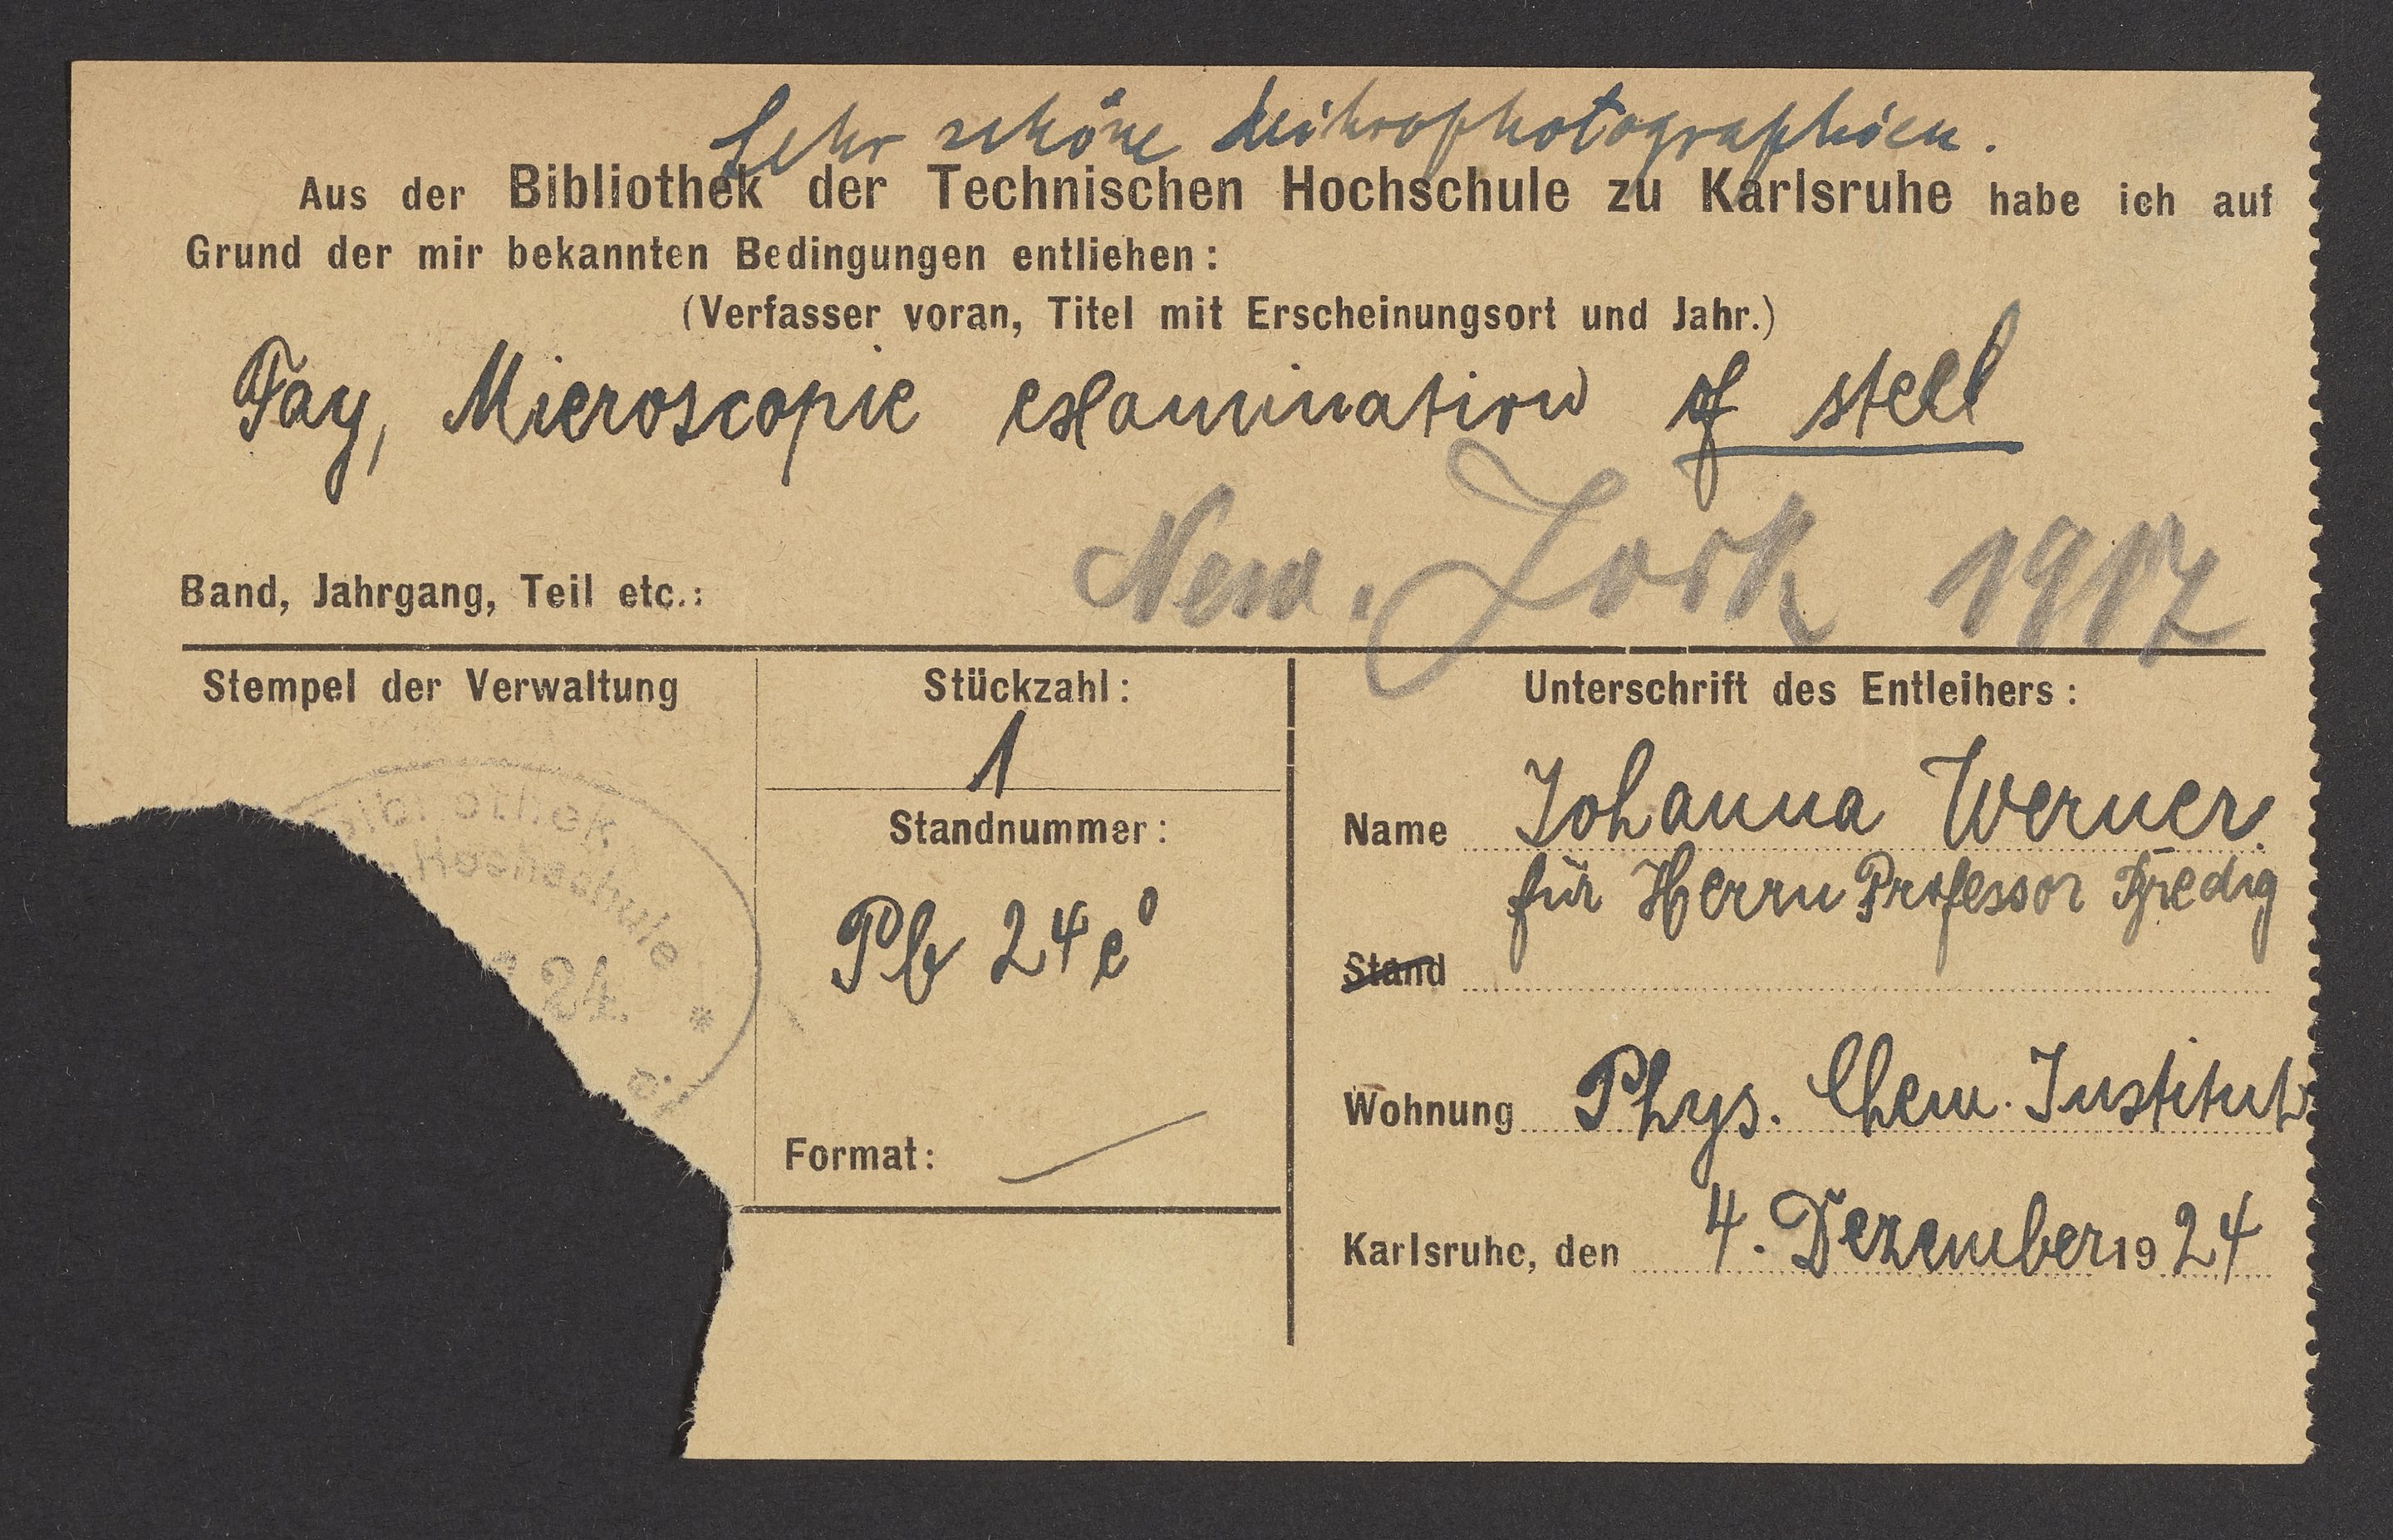 Sehr schöne Mikrophotographien.
Aus der Bibliothek der Technischen Hochschule zu Karlsruhe habe ich auf
Grund der mir bekannten Bedingungen entliehen:
(Verfasser voran, Titel mit Erscheinungsort und Jahr.)
Fay, Microscopic examination of steel
New. York 1917
Band, Jahrgang, Teil etc.:
Stempel der Verwaltung
Bibliothek
Hochschule
24.
*
Stückzahl:
1
Standnummer:
Pb 24 e⁰
Format:
Unterschrift des Entleihers:
Name Johanna Werner.
für Herrn Professor Bredig
Stand
Wohnung Phys. Chem. Institut
Karlsruhe, den 4. Dezember 1924